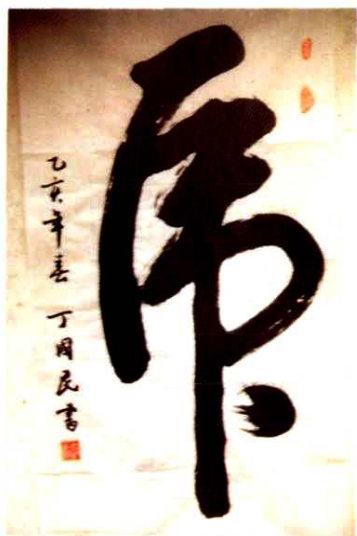 虎
乙亥年春 丁國民書